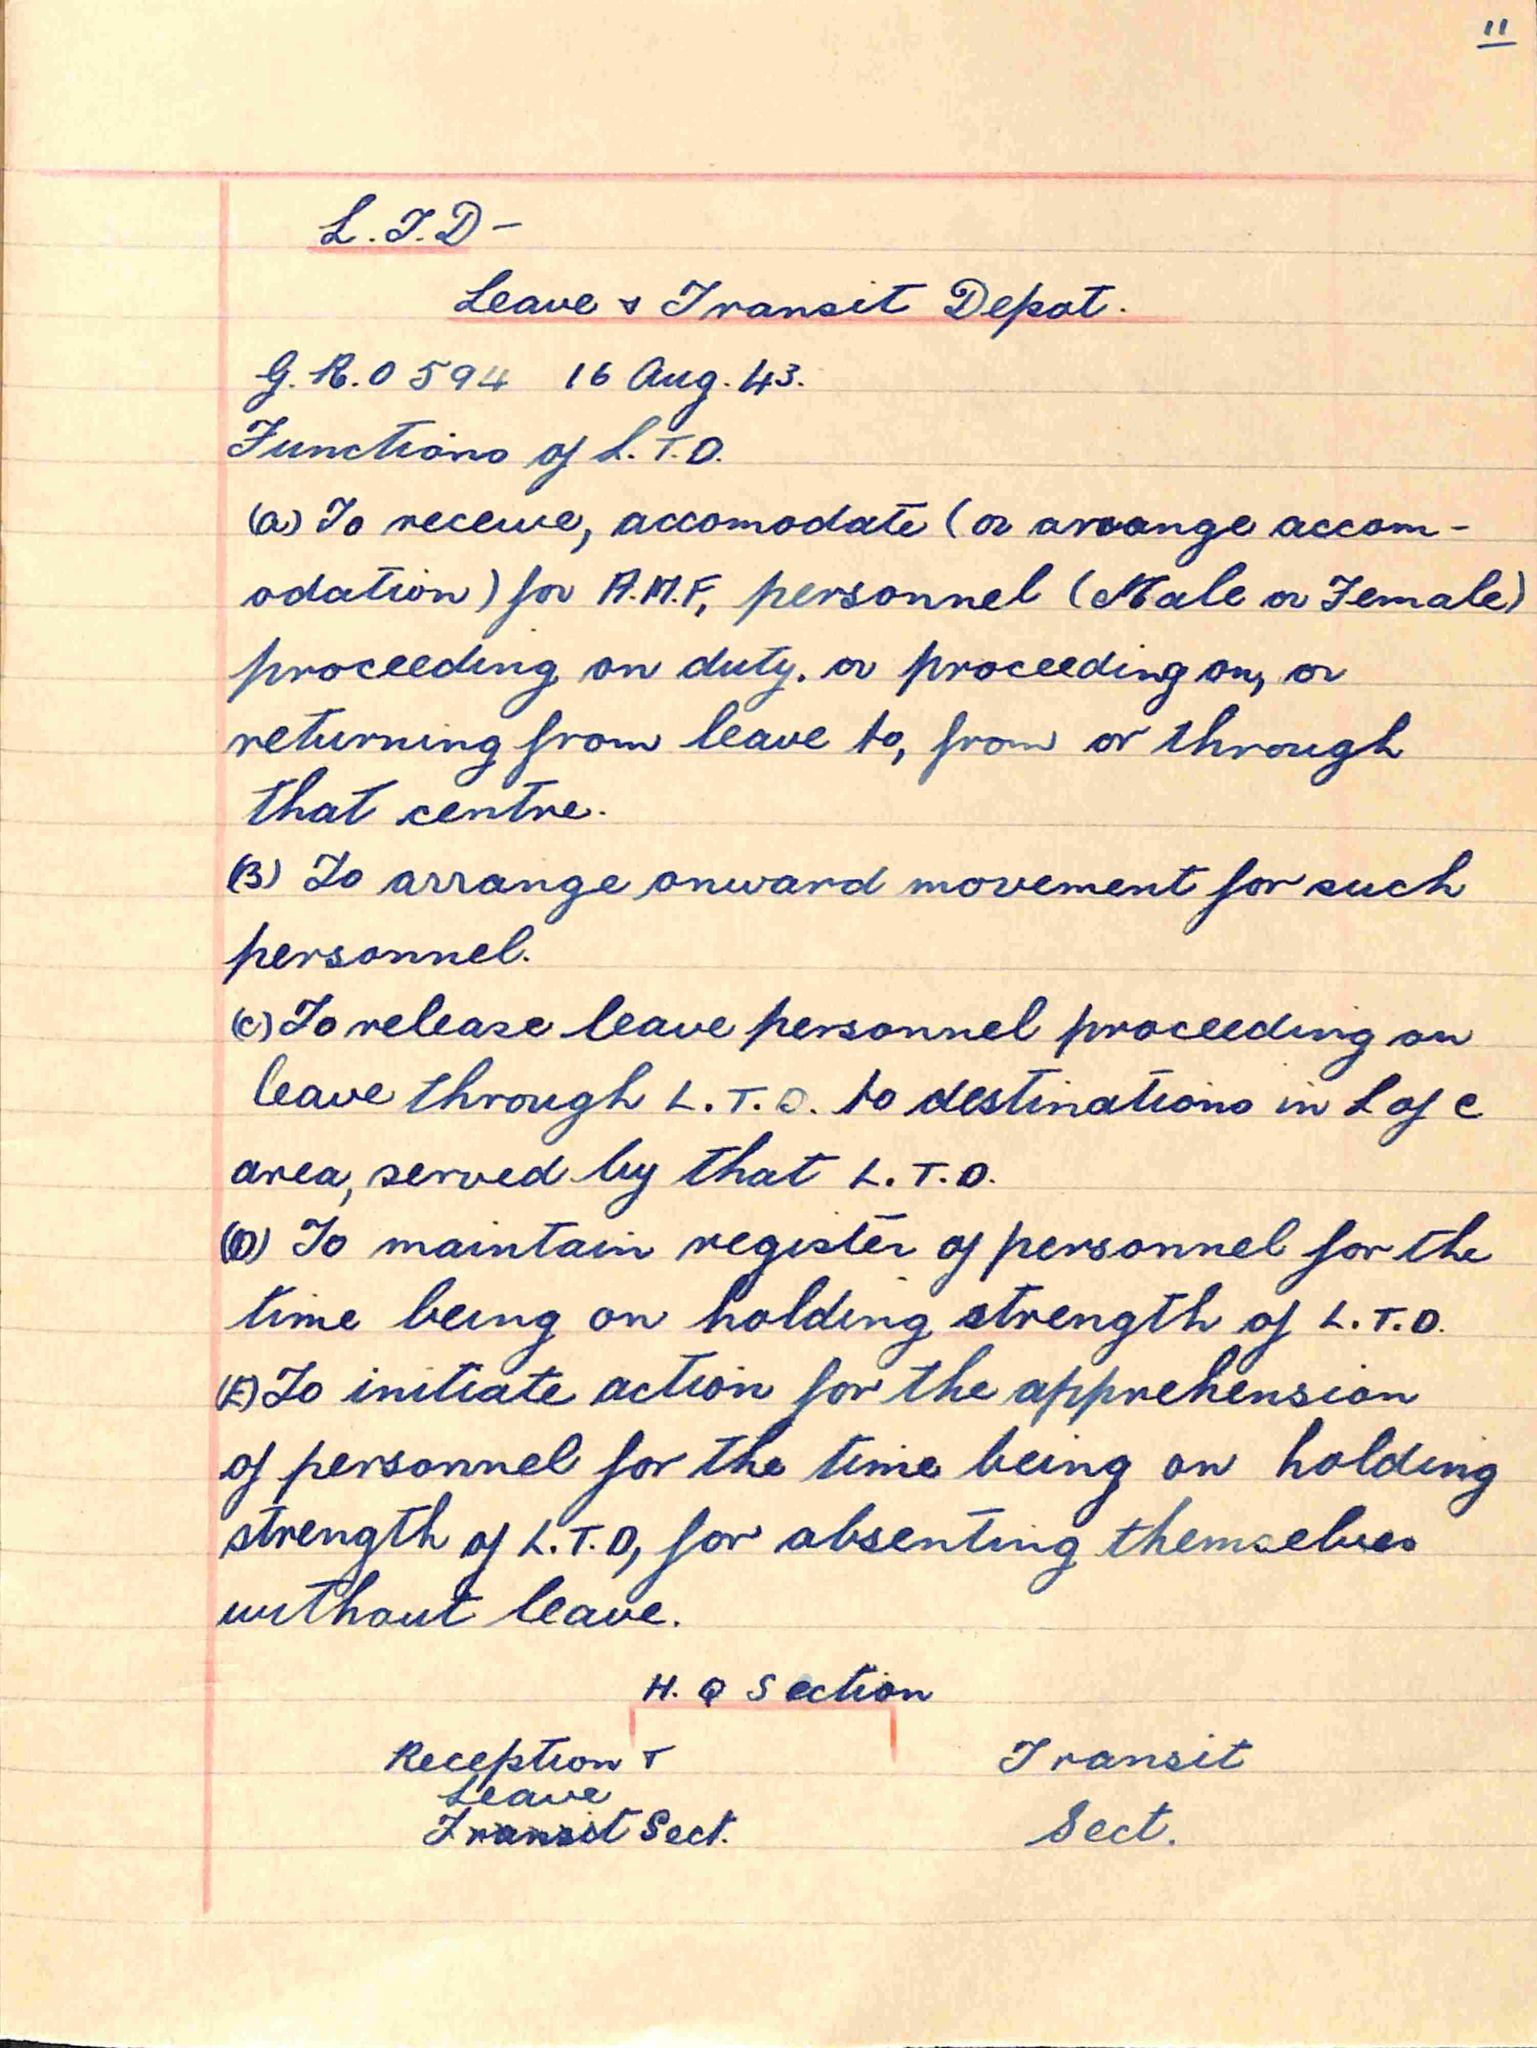 11
L.T.D –
Leave & Transit Depot.
G.R.O 594 16 Aug. 43.
Functions of L.T.D.
(a) To receive, accomodate (or arrange accom-
odation) for A.M.F, personnel (Male or Female)
proceeding on duty. or proceeding on, or
returning from leave to, from or through
that centre.
(B) To arrange onward movement for such
personnel.
(C) To release leave personnel proceeding on
leave through L.T.D. to destinations in L of C
area, served by that L.T.D.
(D) To maintain register of personnel for the
time being on holding strength of L.T.D.
(E) To initiate action for the apprehension
of personnel for the time being on holding
strength of L.T.D, for absenting themselves
without leave.
H.Q Section
Reception & Transit
Leave
Transit Sect. Sect.